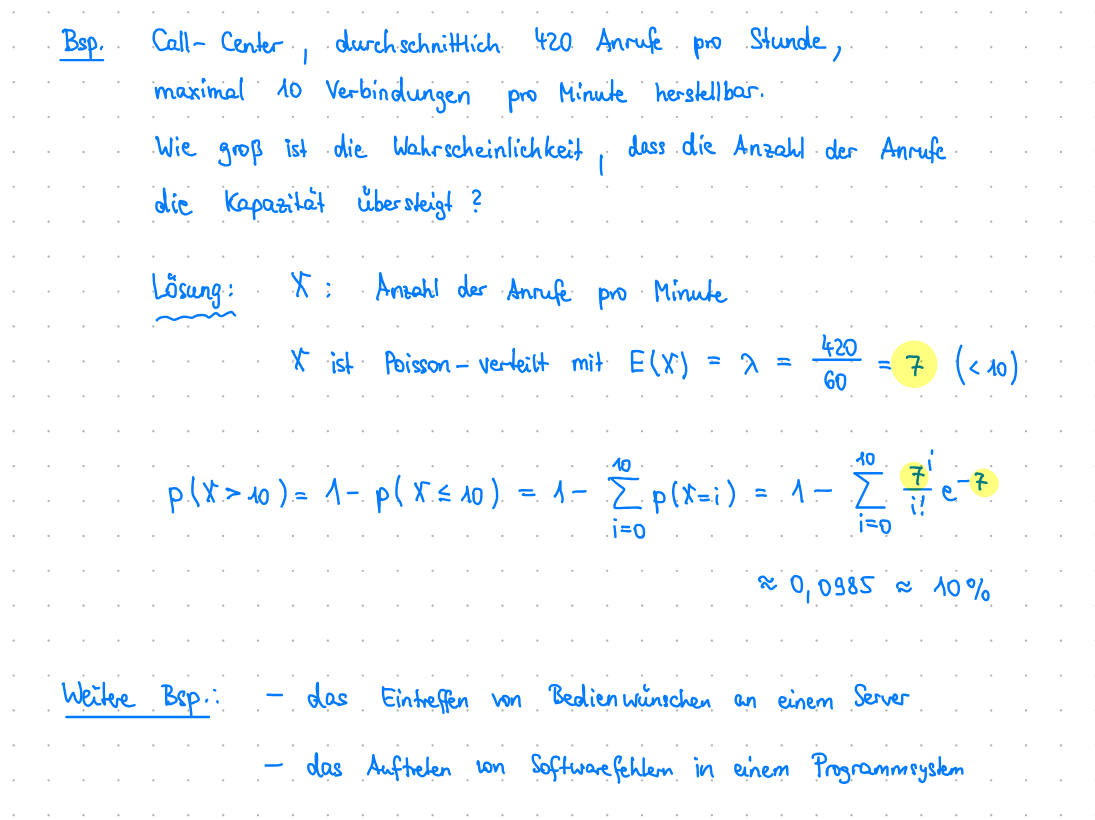 Bsp. Call-Center, durchschnittlich 420 Anrufe pro Stunde,
maximal 10 Verbindungen pro Minute herstellbar.
Wie groß ist die Wahrscheinlichkeit, dass die Anzahl der Anrufe
die Kapazität übersteigt?
Lösung: X: Anzahl der Anrufe pro Minute
X ist Poisson-verteilt mit E(X) = λ = 420/60 = 7 (<10)
p(X>10) = 1 - p(X≤10) = 1 - ∑_{i=0}^{10} p(X=i) = 1 - ∑_{i=0}^{10} 7^i/i! e^{-7}
≈ 0,0985 ≈ 10%
Weitere Bsp.: - das Eintreffen von Bedienwünschen an einem Server
- das Auftreten von Softwarefehlern in einem Programmsystem